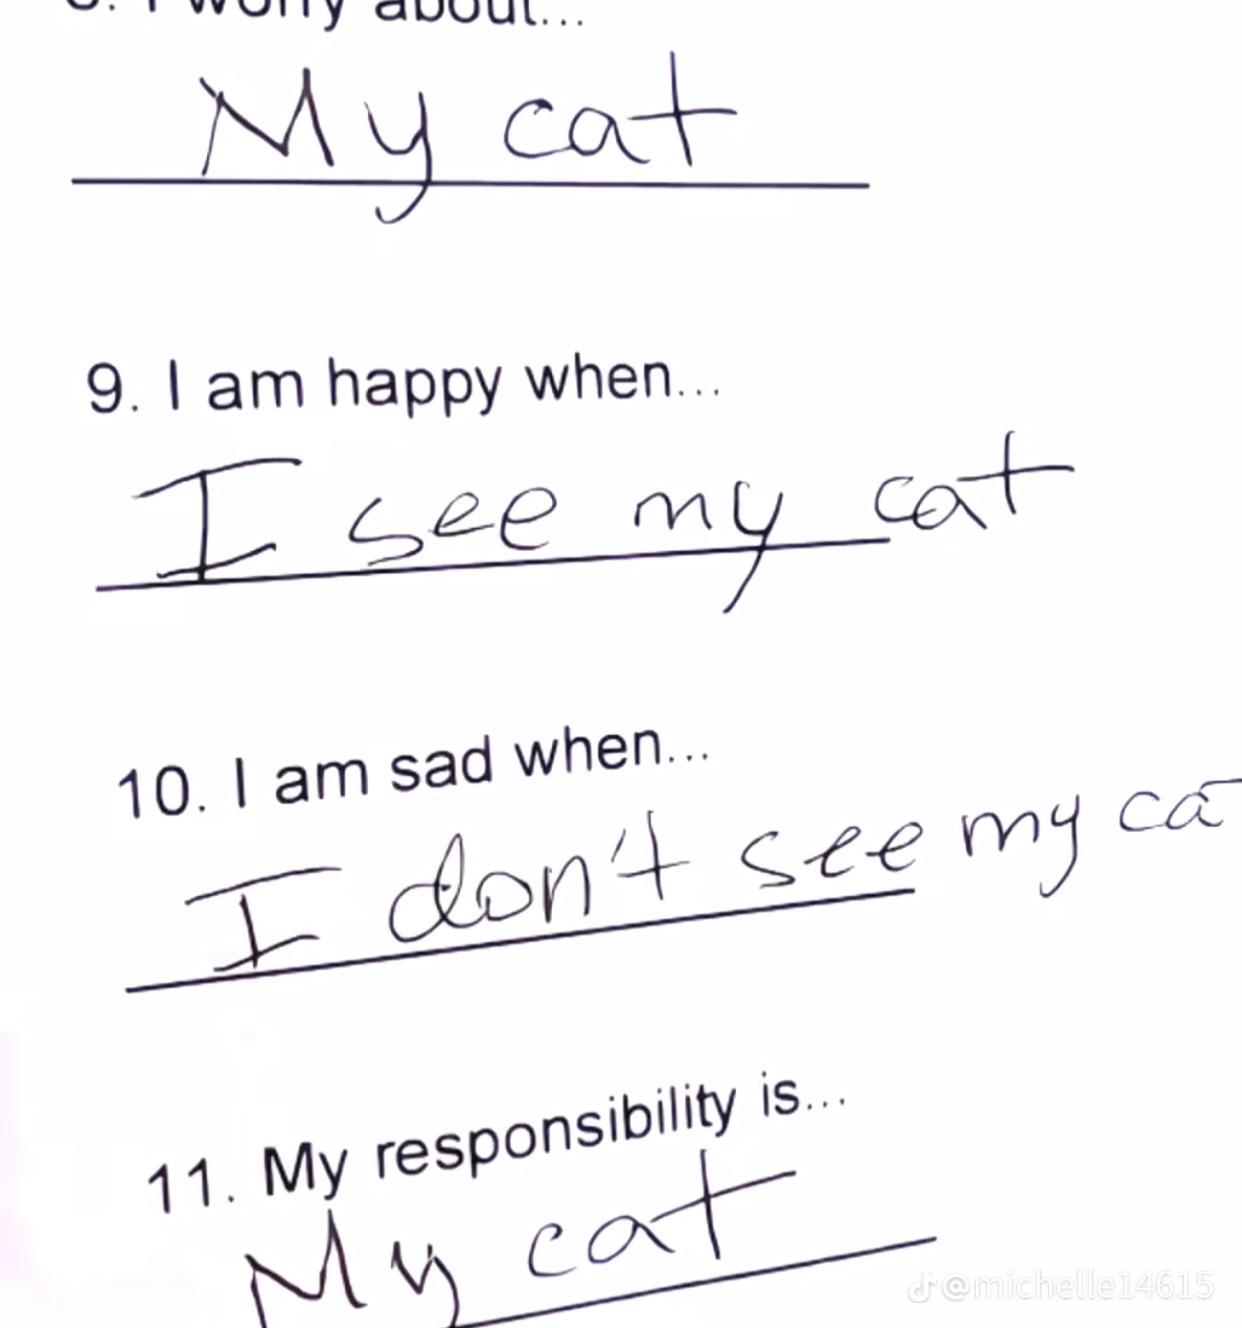 8. I worry about...
My cat
9. I am happy when...
I see my cat
10. I am sad when...
I don't see my ca
11. My responsibility is...
My cat
@michelle14615